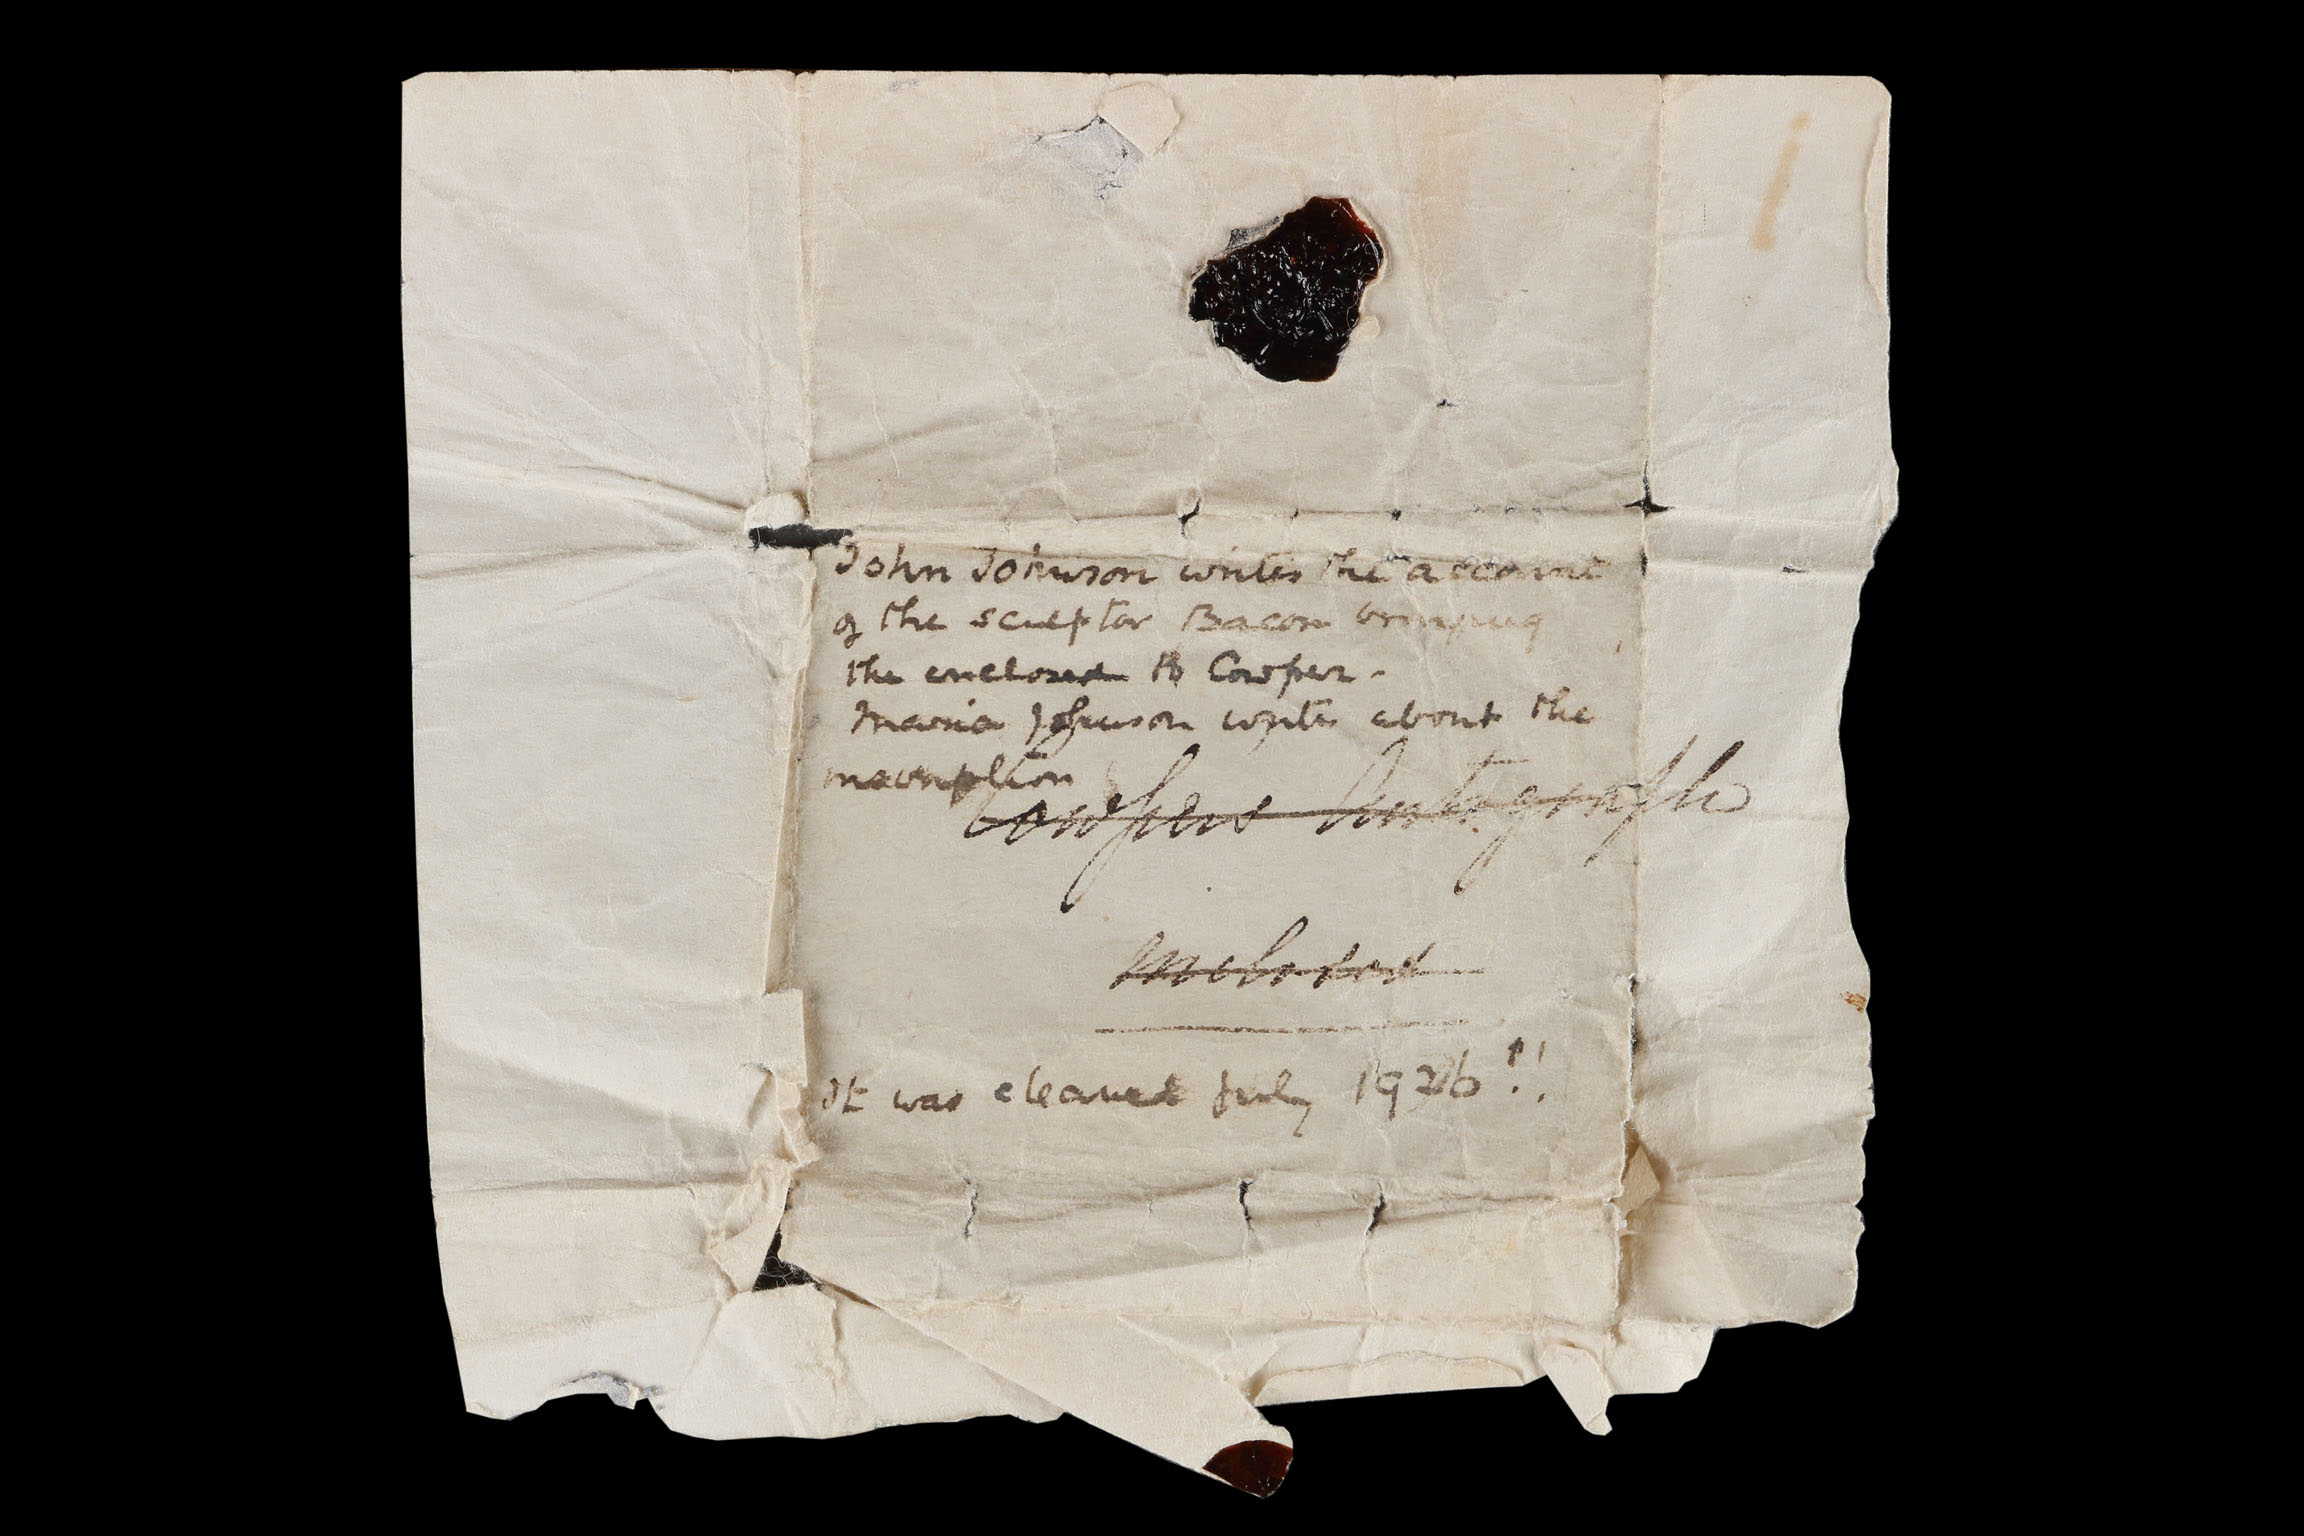 John Johnson writes the account
of the sculptor Bacon bringing
the enclosed to Cowper.
Maria Johnson writes about the
inscription
Cowpers Autograph
inclosed
It was cleaned July 1926!!